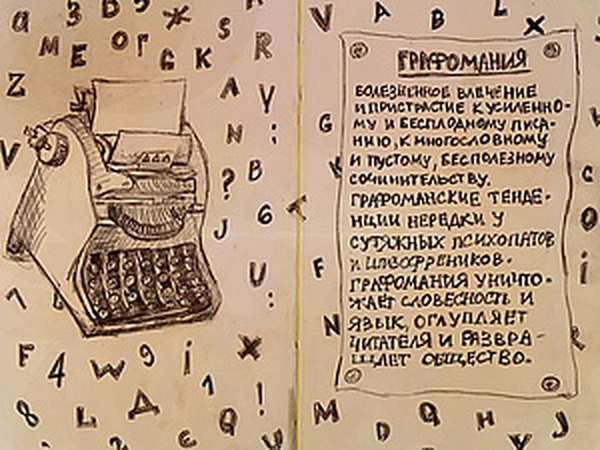 ГРАФОМАНИЯ
БОЛЕЗНЕННОЕ ВЛЕЧЕНИЕ
И ПРИСТРАСТИЕ К УСИЛЕННО-
МУ И БЕСПЛОДНОМУ ПИСА-
НИЮ, К МНОГОСЛОВНОМУ
И ПУСТОМУ, БЕСПОЛЕЗНОМУ
СОЧИНИТЕЛЬСТВУ.
ГРАФОМАНСКИЕ ТЕНДЕ-
НЦИИ НЕРЕДКИ У
СУТЯЖНЫХ ПСИХОПАТОВ
И ШИЗОФРЕНИКОВ.
ГРАФОМАНИЯ УНИЧТО-
ЖАЕТ СЛОВЕСНОСТЬ И
ЯЗЫК, ОГЛУПЛЯЕТ
ЧИТАТЕЛЯ И РАЗВРА-
ЩАЕТ ОБЩЕСТВО.